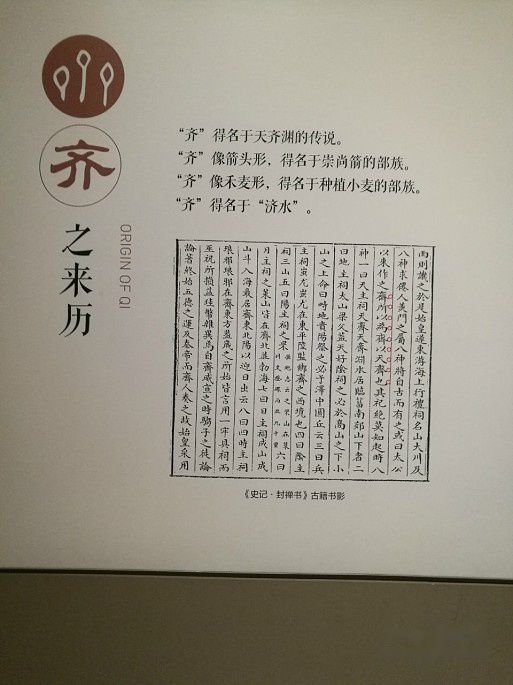 齐
之来历
ORIGIN OF QI
“齐”得名于天齐渊的传说。
“齐”像箭头形，得名于崇尚箭的部族。
“齐”像禾麦形，得名于种植小麦的部族。
“齐”得名于“济水”。
而則譏之於是始皇遂東游海上行禮祠名山大川及
八神求僊人羨門之屬八神將自古而有之或曰太公
以來作之齊所以為齊以天齊也其祀絶莫知起時八
神一曰天主祠天齊天齊淵水居臨菑南郊山下者二
曰地主祠太山梁父蓋天好陰祠之必於高山之下小
山之上命曰畤地貴陽祭之必于澤中圜丘云三曰兵
主祠蚩尤蚩尤在東平陸監鄉齊之西境也四曰陰主
祠三山五曰陽主祠之罘
六曰
月主祠之萊山皆在齊北並勃海七曰日主祠成山成
山斗入海最居齊東北陽以迎日出云八曰四時主祠
琅邪琅邪在齊東方蓋歲之所始皆言用一牢具祠而
巫祝所損益珪幣雜異焉自齊威宣之時騶子之徒論
論著終始五德之運及秦帝而齊人奏之故始皇采用
《史记·封禅书》古籍书影